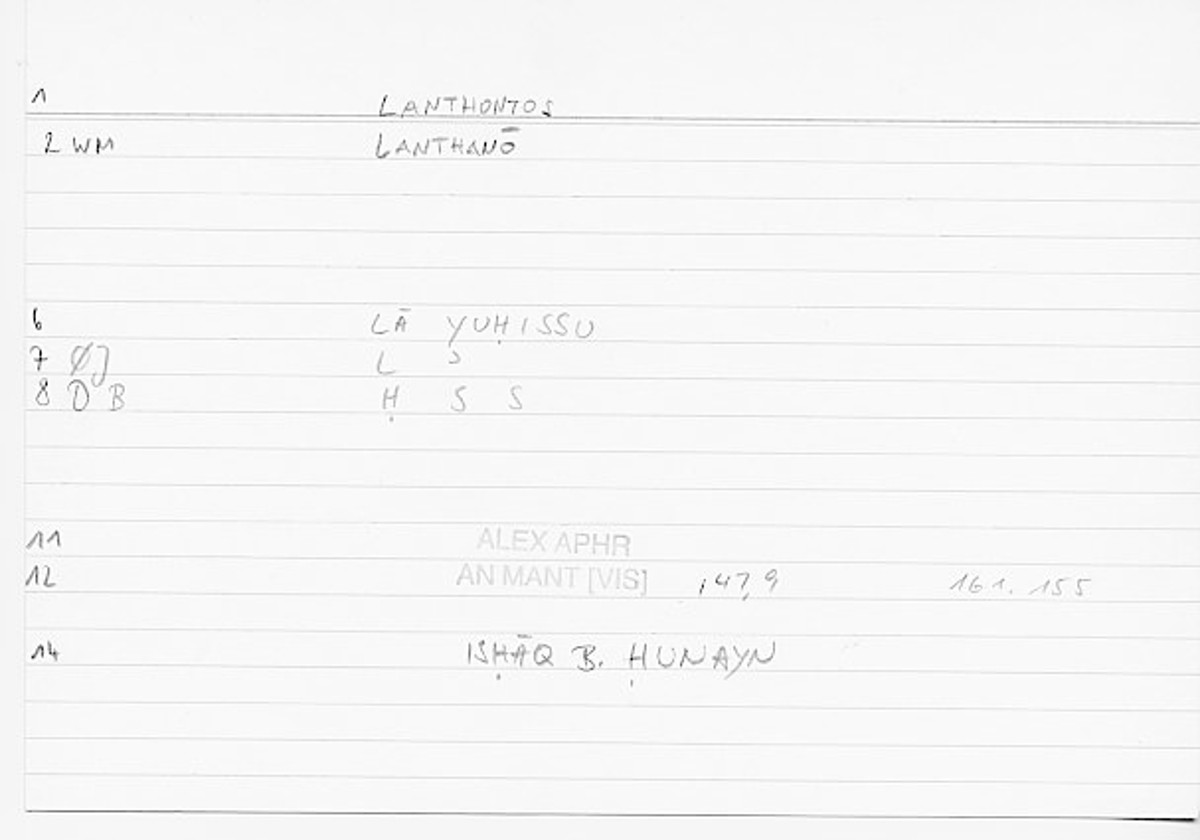 1 LANTHONTOS
2 WM LANTHANŌ
6 LĀ YUḤISSU
7 ØJ L
8 D B Ḥ S S
11 ALEX APHR
12 AN MANT [VIS] ,47,9 161. 155
14 ISḤĀQ B. ḤUNAYN